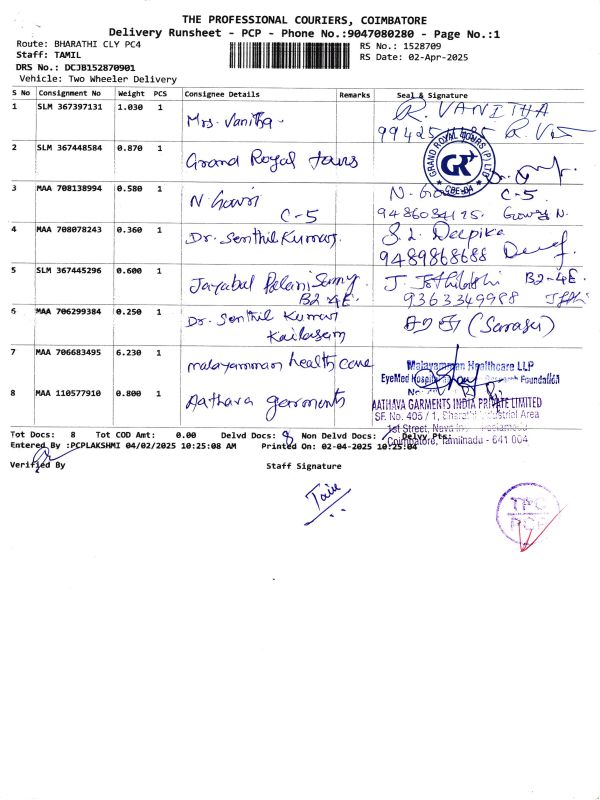 THE PROFESSIONAL COURIERS, COIMBATORE
Delivery Runsheet - PCP - Phone No.:9047080280 - Page No.:1
Route: BHARATHI CLY PC4
RS No.: 1528709
Staff: TAMIL
RS Date: 02-Apr-2025
DRS No.: DCJB152870901
Vehicle: Two Wheeler Delivery
S No Consignment No Weight PCS Consignee Details Remarks Seal & Signature
1 SLM 367397131 1.030 1 Mrs. Vanitha R. VANITHA
2 SLM 367448584 0.870 1 Grand Royal tours
GRAND ROYAL TOURS (P) LTD
GR
3 MAA 708138994 0.580 1 N Gowri
C-5 C-5
4 MAA 708078243 0.360 1 Dr. Senthil Kumar. S. L. Deepika
9489868688
5 SLM 367445296 0.600 1 Jayabal Palani Samy B2-4E
B2 4E 9363349988
6 MAA 706299384 0.250 1 Dr. Senthil Kumar (Sarasu)
Kailasam
7 MAA 706683495 6.230 1 malayamman health care Malayamman Healthcare LLP
EyeMed Foundation
8 MAA 110577910 0.800 1 Aathava garments AATHAVA GARMENTS INDIA PRIVATE LIMITED
SF. No. 405 / 1, Industrial Area
1st Street,
Coimbatore, Tamilnadu - 641 004
Tot Docs: 8 Tot COD Amt: 0.00 Delvd Docs: 8 Non Delvd Docs: Delvy Pts:
Entered By :PCPLAKSHMI 04/02/2025 10:25:08 AM Printed On: 02-04-2025 10:25:48 AM
Verified By Staff Signature
TPC
PCP